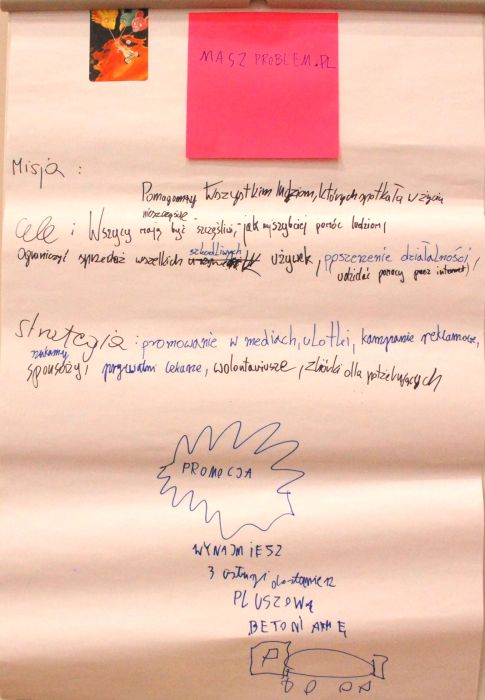 MASZ PROBLEM.PL
Misja:
Pomagamy wszystkim ludziom, których spotkała w życiu
nieszczęście
Cele i Wszyscy mają być szczęśliwi, jak najszybciej pomóc ludziom,
szkodliwych
Ograniczyć sprzedaż wszelkich używek, poszerzenie działalności,
udzielać pomocy przez internet
Strategia: promowanie w mediach, ulotki, kampanie reklamowe,
szukamy
sponsorzy, prywatni lekarze, wolontariusze, zbiórki dla potrzebujących
PROMOCJA
WYNAJMIESZ
3 dostaniesz
PLUSZOWĄ
BETONIARKĘ
P